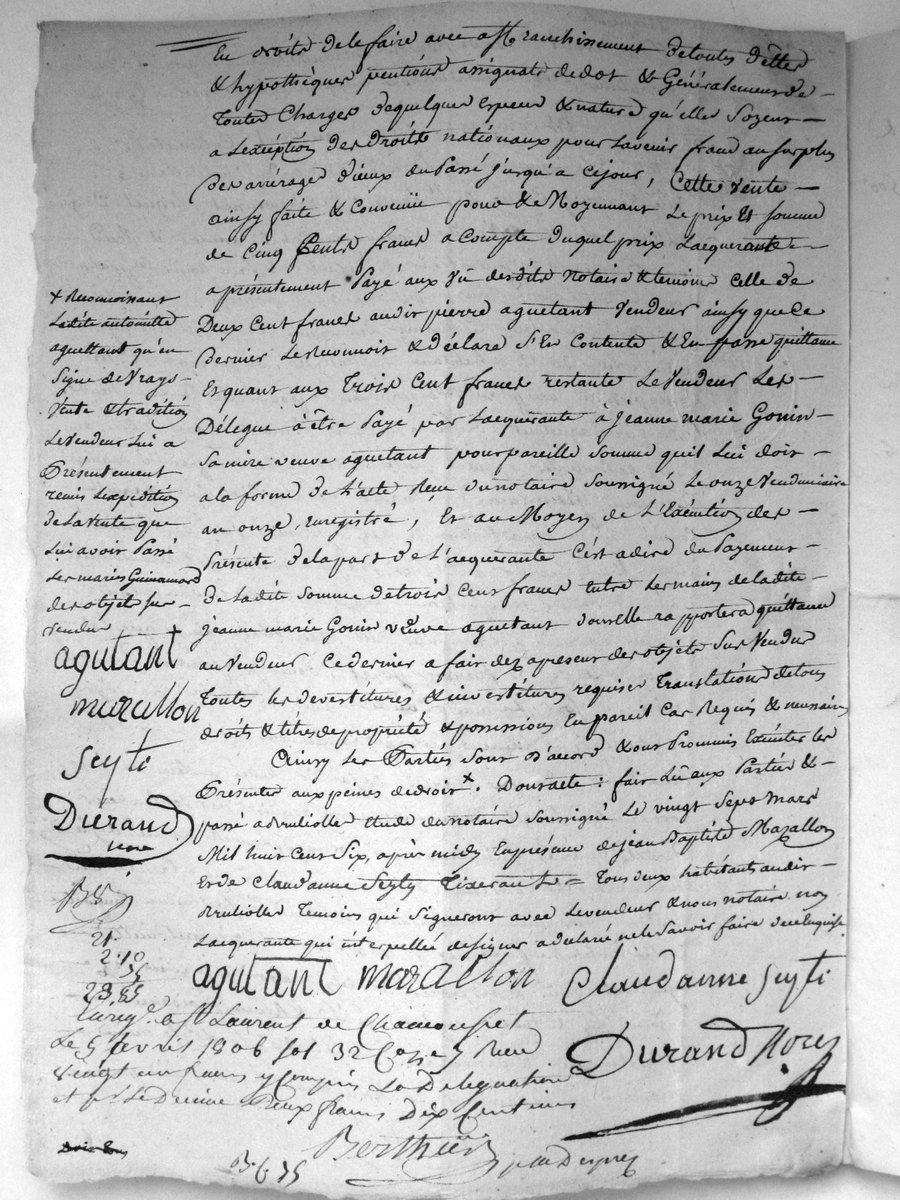 En droits de le faire avec affranchissement de toutes dettes
& hypothèques pentions assignats de dot & Généralement de
toutes Charges de quelques Espece & nature qu'elle Soyent
a L'exception des Droits nationaux pour Lavenir franc au Surplus
Des arrérages D'iceux du Passé Jusqu'a ce jour, Cette Vente
ainsy faite & Convenüe pour & Moyennant Le prix Et Somme
de Cinq Cents francs a Compte duquel prix Lacquerante
a présentement Payé aux Vû desdits Notaire & temoins Celle de
Deux Cent francs audit pierre aguetant Vendeur ainsy que Ce
Dernier Le Reconnoit & Déclare S'En Contente & En passe quittance
Et quant aux Trois Cent francs restants Le Vendeur Les
Délegue à être Payé par Lacquerante à Jeanne marie Gonin
Sa mere veuve aguetant pour pareille Somme quil Lui doit
a la forme de L'acte Recu du notaire Soussigné Le onze Vendemiaire
an onze, Enregistré, Et au Moyen de L'Exécution des
Présente de la part de L'acquerante C'est adire du Payement
de Ladite Somme de trois Cent francs Entre Les mains de ladite
Jeanne marie Gonin veuve aguetant dont Elle rapportera quittance
au Vendeur Ce dernier a fait dez apresent des objets Sus Vendus
Toutes les devestitures & investitures requises Translations de tous
droits & titres de propriété & possessions En pareil Cas Requis & necessaires
Ainsy Les Parties Sont D'accord & ont Promis Exécuter les
Présentes aux peines de droit x. Dont acte: fait Lû aux Parties &
passé a Brulliolles Etude du notaire Soussigné Le vingt Sept Mars
Mil huit Cent Six, après midy En présence de Jean Baptiste Mazallon
Et de Claudanne Seyty Tixerant = Tous deux habitants audit
Brulliolles Temoins qui Signeront avec Le vendeur & nous notaire non
Lacquerante qui interpellée de signer a declaré ne le Savoir faire de ce Enquise
x Reconnoissant
Ladite antoinette
aguettant qu'en
Signe de Vraye
Vente & tradition
Le Vendeur Lui a
Présentement
remis L'expedition
de La Vente que
Lui avoit Passé
Les mariés Guinamard
des objets sus
vendus
agutant
marallon
Seyti
Durand
nore
21.
2.10
23.
agutant marallon Claudanne Seyti
Durand Nore
Enreg. a St Laurent de Chamousset
Le 5 avril 1806 fol 32 Case 7 Recu
vingt un francs y Compris La Délégation
et pr Le Decime Deux francs Dix Centimes
Berthier